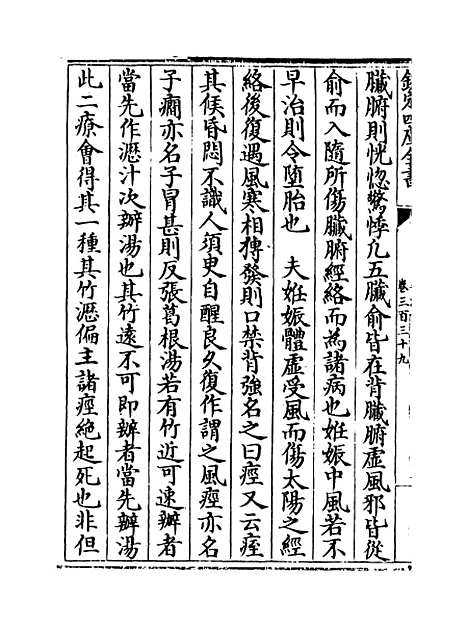 欽定四庫全書
卷三百三十九
臟腑則恍惚驚悸凡五臟俞皆在背臟腑虛風邪皆從
俞而入隨所傷臟腑經絡而為諸病也姙娠中風若不
早治則令墮胎也　夫姙娠體虛受風而傷太陽之經
絡後復遇風寒相摶發則口禁背強名之曰痙又云痓
其候昏悶不識人須㬰自醒良久復作謂之風痙亦名
子癎亦名子冒甚則反張葛根湯若有竹近可速辦者
當先作瀝汁次辦湯也其竹遠不可即辦者當先辦湯
此二療會得其一種其竹瀝偏主諸痙絶起死也非但